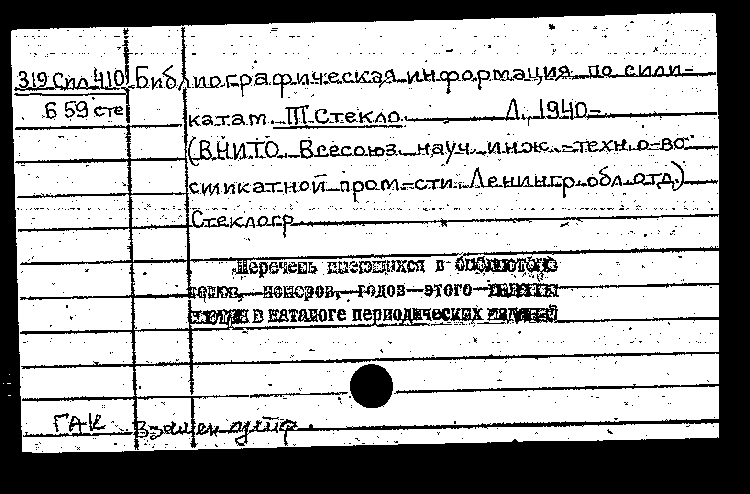 319 Сил 410 Библиографическая информация по сили-
659 сте
катам. III. Стекло. Л., 1940-
(ВНИТО. Всесоюз. науч. инж.-техн. о-во
силикатной пром-сти. Ленингр. обл. отд.)
Стеклогр.
Перечень имеющихся в библиотеке
номеров, годов этого
в каталоге периодических изданий
ГАК Взамен